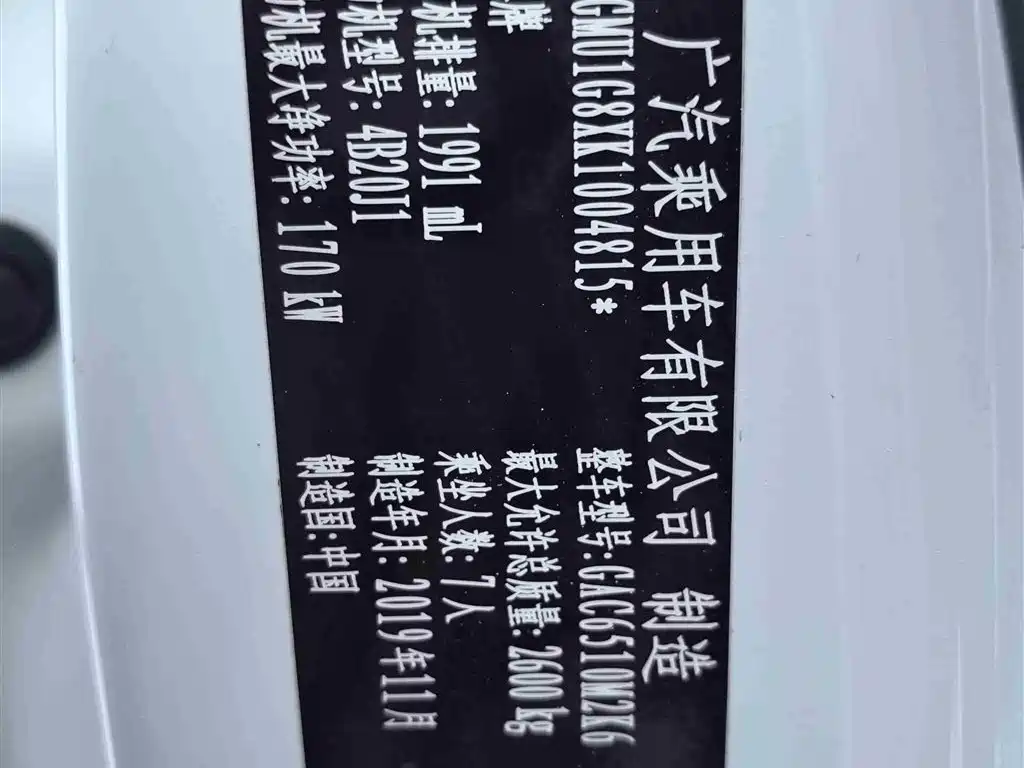 广汽乘用车有限公司 制造
GMU1G8XK1004815*
整车型号:GAC6510M2K6
牌
最大允许总质量:2600kg
机排量:1991mL
乘坐人数:7人
机型号:4B20J1
制造年月:2019年11月
机最大净功率:170kW
制造国:中国